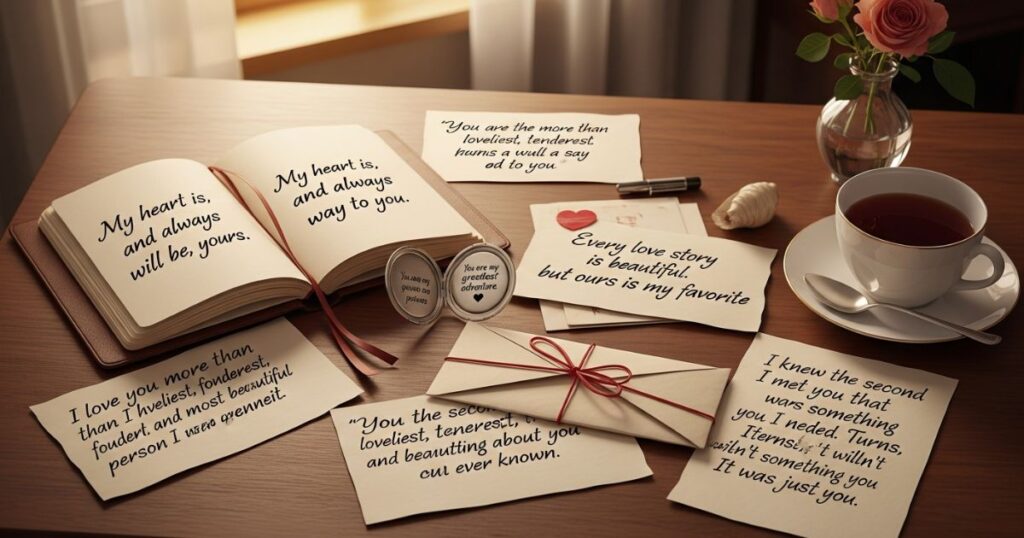 "You are the more than
loveliest, tenderest
hurns a wull a say
od to you
My heart is,
and always
will be, yours.
My heart is,
and always
way to you.
Every love story
is beautiful.
but ours is my favorite
You are my
greetlest
adventure
I love you more than
than I hveliest, fonderest,
foudert, and most beautiful
person I
"You the secon
loveliest, tenerest, t
and beautting about you
cul ever known.
I knew the second
I met you that
wars something
you I neded. Turns,
willn't
something you
It was just you.